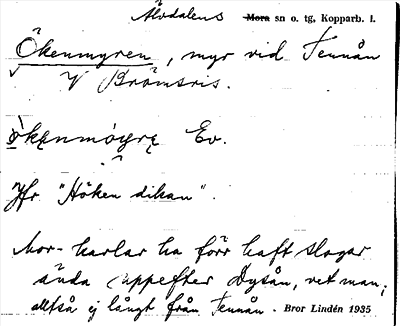 Älvdalens Mora sn o. tg, Kopparb. l.
Ökenmyren, myr vid Tennån
V Brömsris.
Ev.
Jfr "Höken dikan".
Mor-karlar ha förr haft slogar
ända uppefter Dysån, vet man,
alltså ej långt från Tennån. Bror Lindén 1935